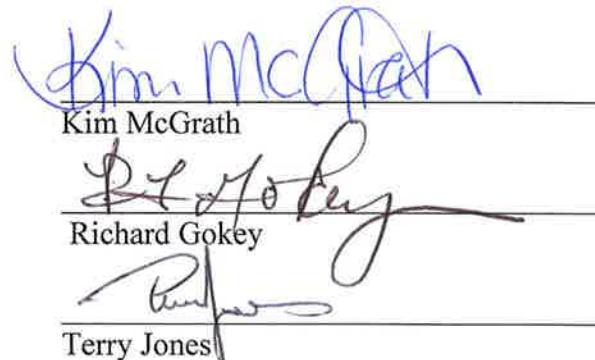 Kim McGrath
Kim McGrath
R L Gokey
Richard Gokey
Terry Jones